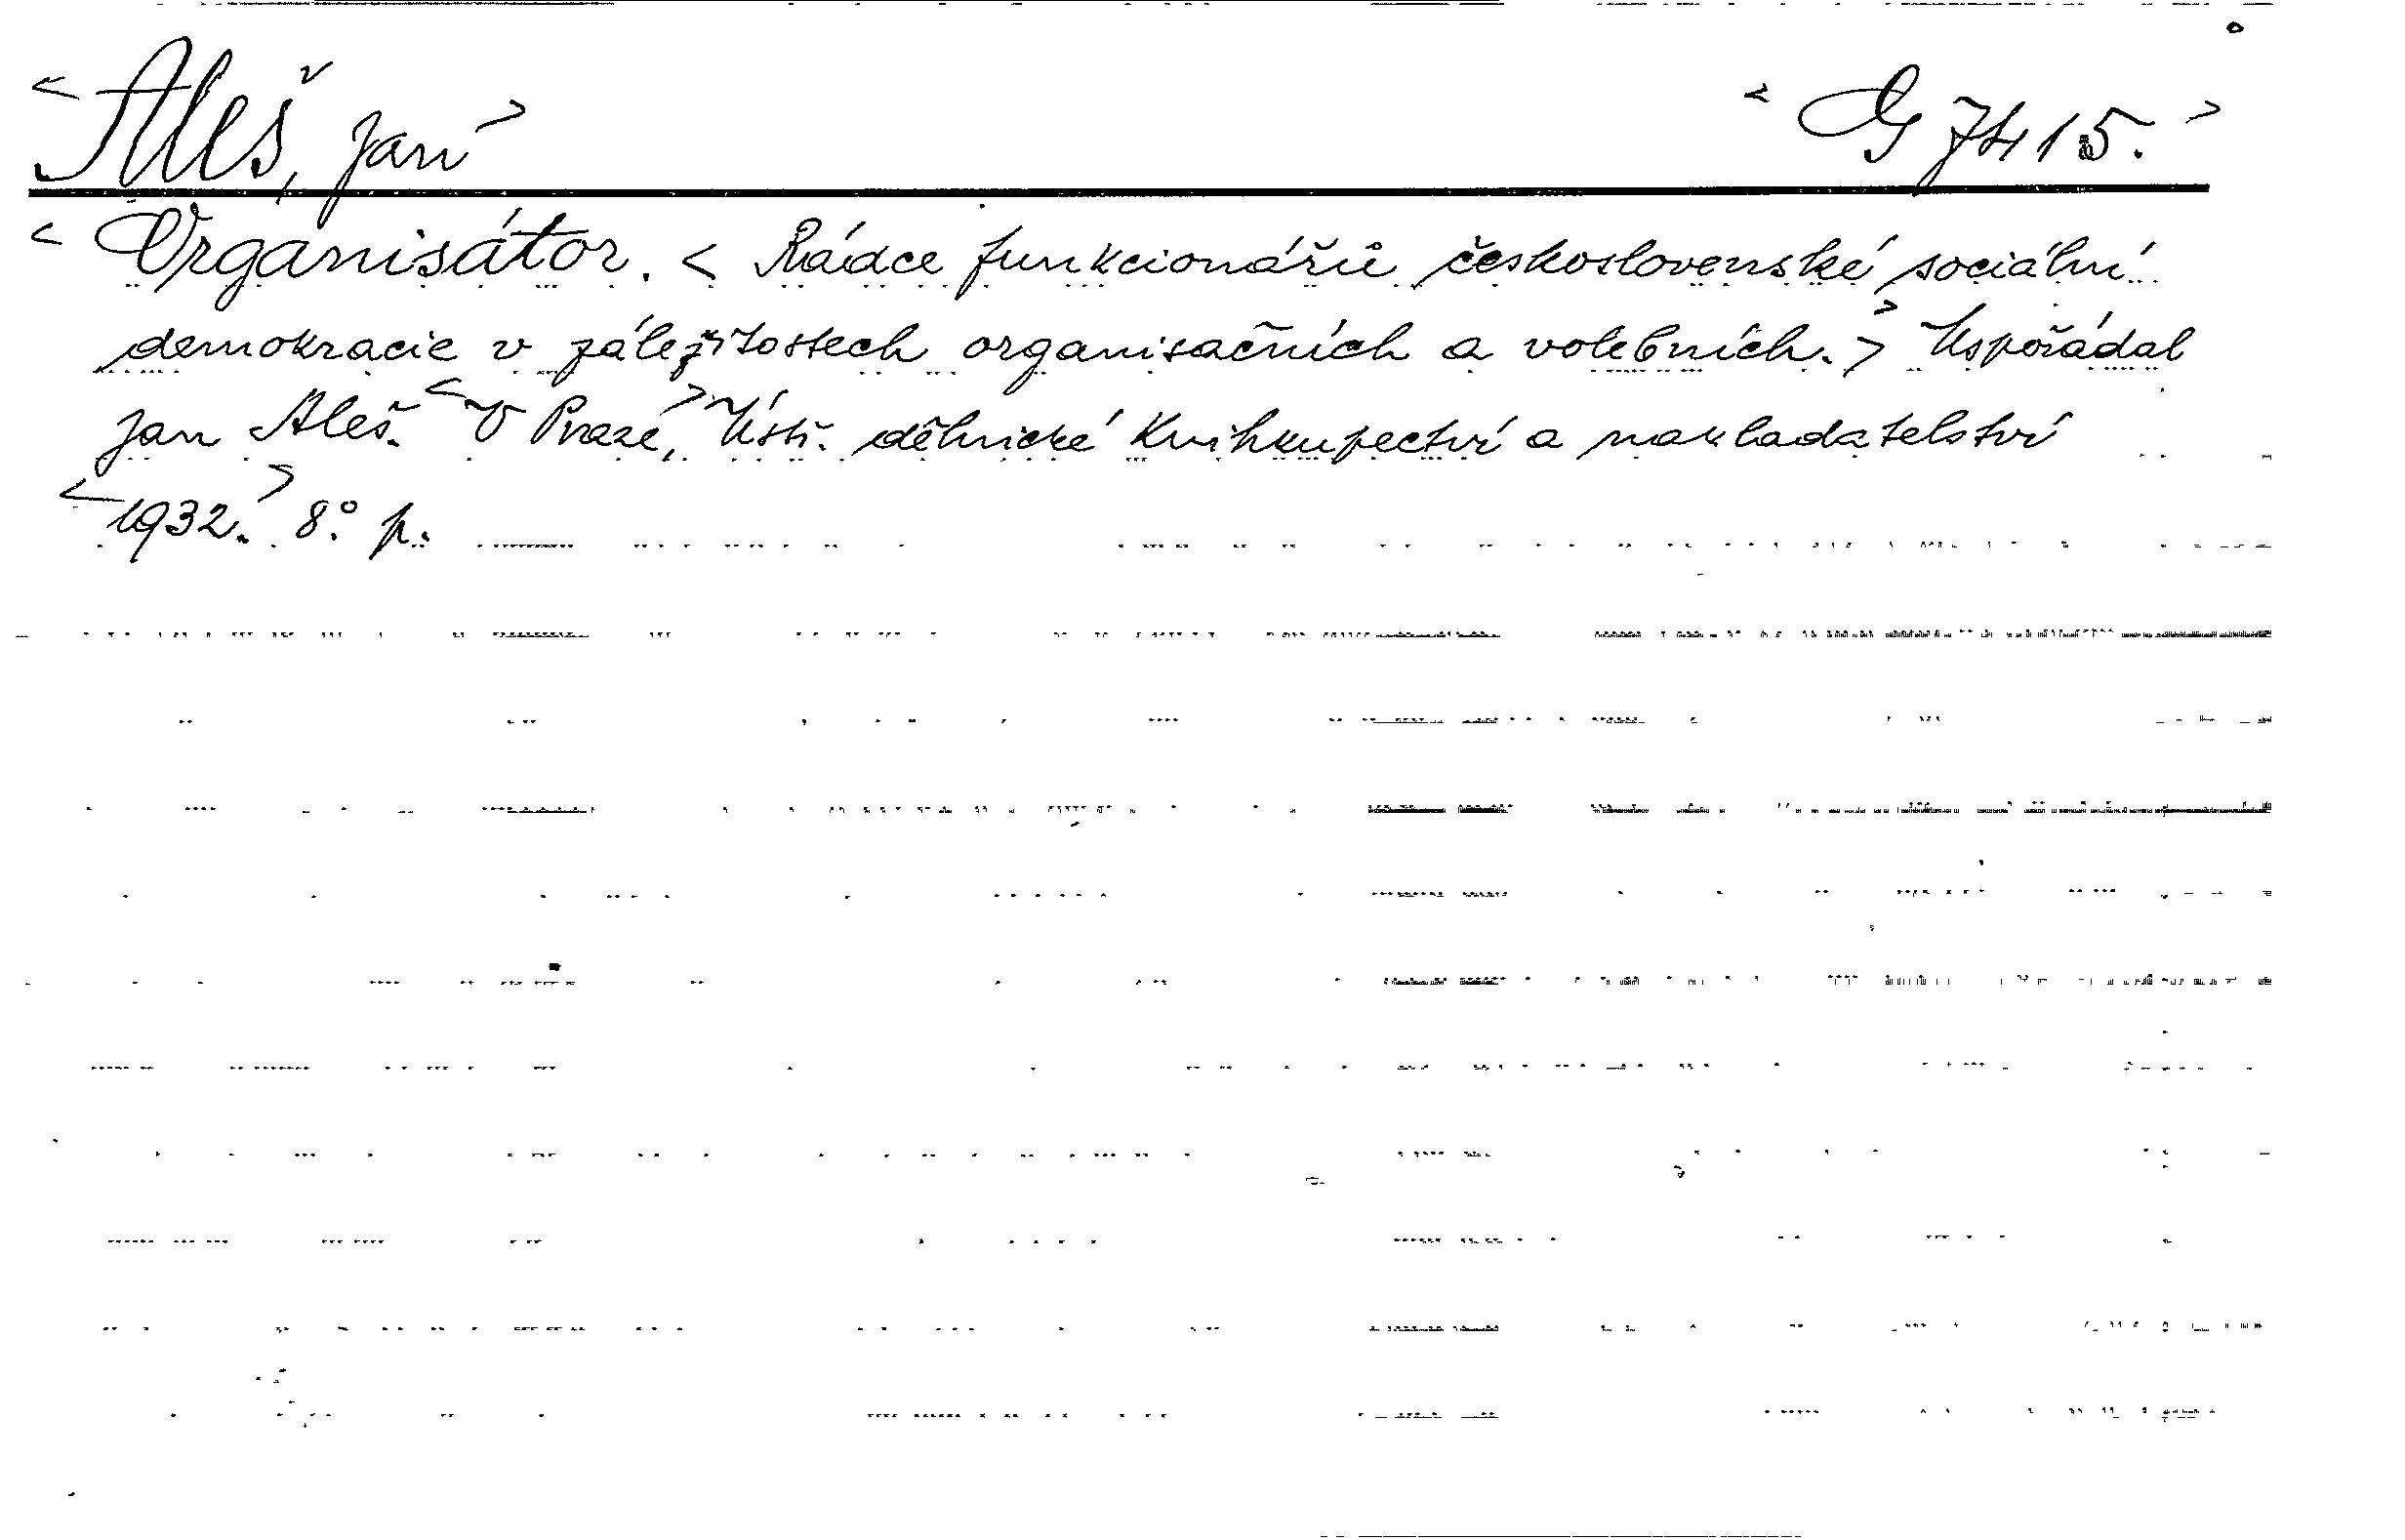 <Aleš, Jan> <G 7415.>
<Organisátor. < Rádce funkcionářů československé sociální
demokracie v záležitostech organisačních a volebních.>> Uspořádal
Jan Aleš. <V Praze,> Ústř. dělnické knihkupectví a nakladatelství
<1932.> 8°. p.